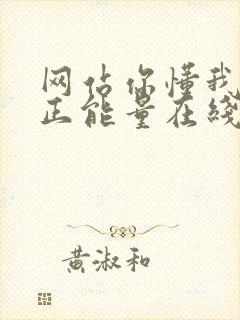 网站你懂我
正能量在线
黄淑和